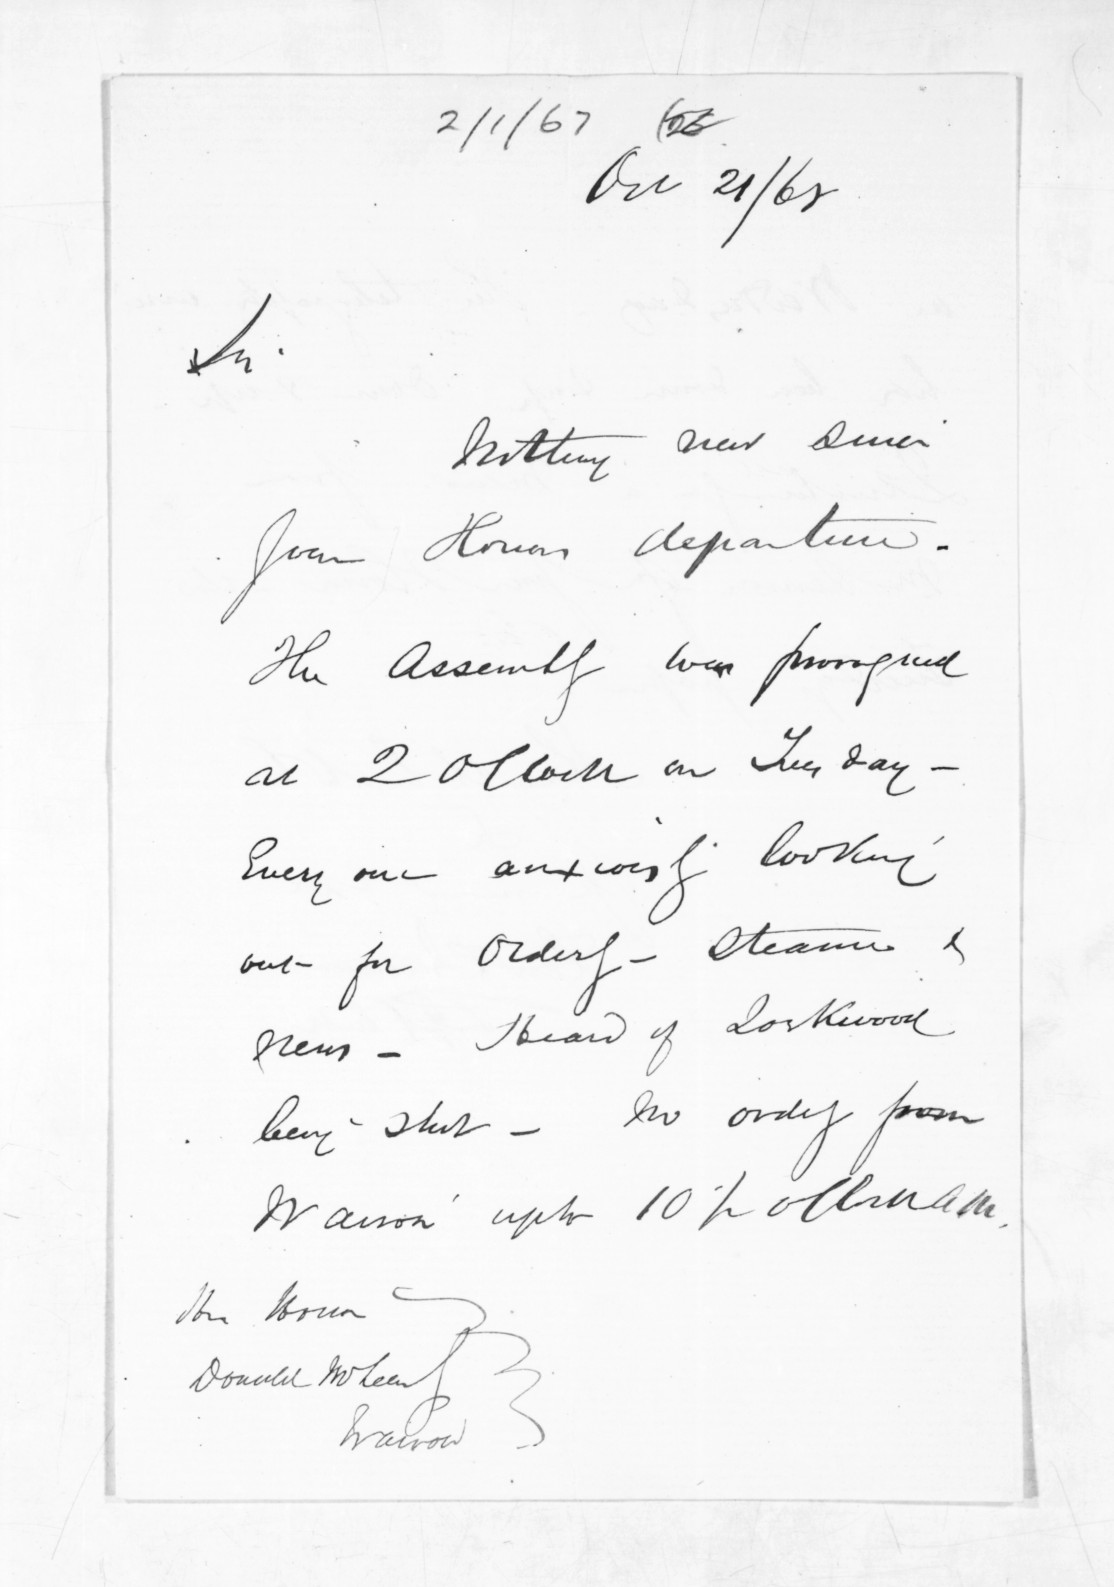 2/1/67
Oct 21/68
Sir
Nothing new since
Your Honors departure.
The Assembly was prorogued
at 2 OClock on Tuesday -
Every one anxiously looking
out for Orderly - Steamer &
news - Heard of Lockwood
being shot - No orderly from
Wairoa up to 10 oClock AM.
His Honor
Donald McLean Esq
Wairoa